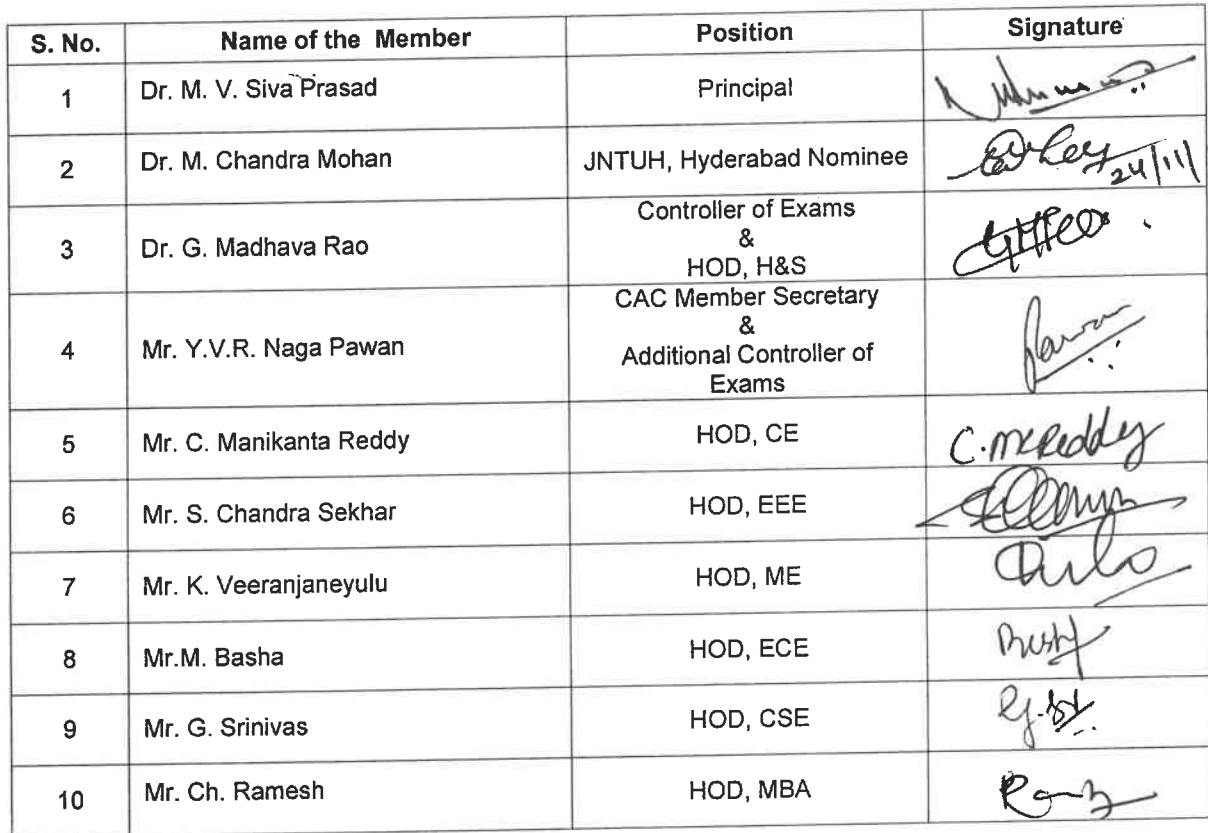 S. No. Name of the Member Position Signature
1 Dr. M. V. Siva Prasad Principal
2 Dr. M. Chandra Mohan JNTUH, Hyderabad Nominee 24/11/
3 Dr. G. Madhava Rao Controller of Exams
&
HOD, H&S
4 Mr. Y.V.R. Naga Pawan CAC Member Secretary
&
Additional Controller of
Exams
5 Mr. C. Manikanta Reddy HOD, CE C.MKReddy
6 Mr. S. Chandra Sekhar HOD, EEE
7 Mr. K. Veeranjaneyulu HOD, ME
8 Mr.M. Basha HOD, ECE
9 Mr. G. Srinivas HOD, CSE
10 Mr. Ch. Ramesh HOD, MBA